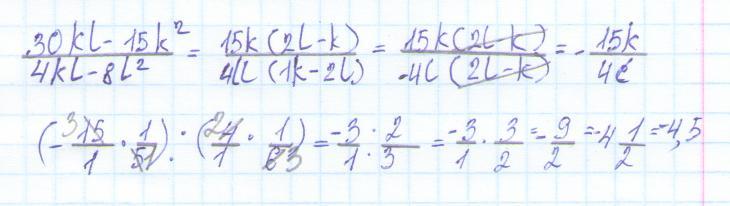 (30kl - 15k²)/(4kl - 8l²) = (15k(2l - k))/(4l(1k - 2l)) = (15k(2l - k))/(-4l(2l - k)) = -15k/4l
(-³15/1 · 1/51) : (²4/1 · 1/63) = -3/1 : 2/3 = -3/1 · 3/2 = -9/2 = -4 1/2 = -4,5